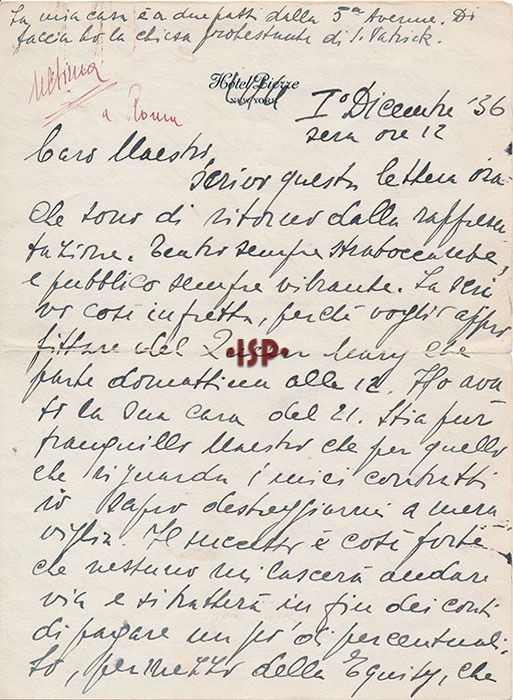 La mia casa è a due passi dalla 5ª Avenue. Di
faccia ho la chiesa protestante di S. Patrick.
ultima
a Roma
Hôtel Pierre
NEW YORK
Iº Dicembre '36
sera ore 12
Caro Maestro,
scrivo questa lettera ora
che sono di ritorno dalla rappresen
tazione. Teatro sempre straboccante,
e pubblico sempre vibrante. La scri
vo così in fretta, perchè voglio appro
fittare del Queen Mary che
parte domattina alle 12. Ho avu
to la sua cara del 21. Stia pur
tranquillo Maestro che per quello
che riguarda i miei contratti
io saprò destreggiarmi a mera
viglia. Il successo è così forte
che nessuno mi lascerà andare
via e si tratterà in fin dei conti
di pagare un po' di percentuali,
to, per mezzo della Equity, che
•ISP•